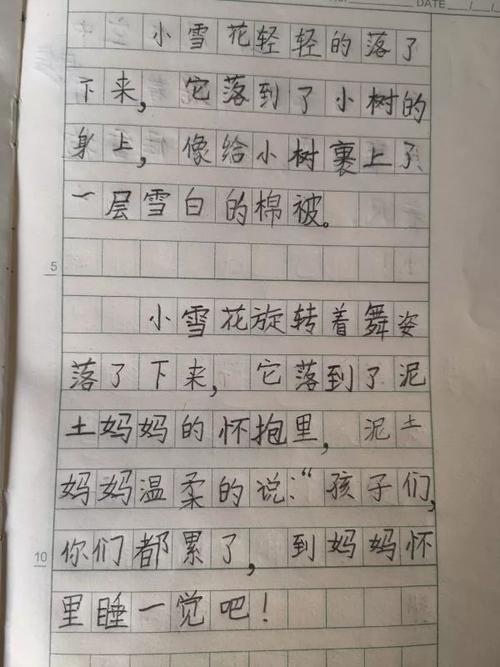 DATE
小雪花轻轻的落了
下来，它落到了小树的
身上，像给小树裹上了
一层雪白的棉被。
5
小雪花旋转着舞姿
落了下来，它落到了泥
土妈妈的怀抱里，泥土
妈妈温柔的说：“孩子们，
10
你们都累了，到妈妈怀
里睡一觉吧！